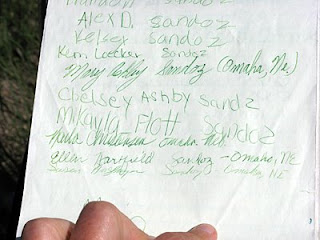 Sandoz
Alex D. Sandoz
Kelsey Sandoz
Kim Sandoz
Mary Ashby Sandoz (Omaha, Ne.)
Chelsey Ashby Sandz
Mikayla Flott Sandoz
Christensen Omaha Neb.
Ellen Hartfield Sandoz - Omaha, NE
Susan Omaha, NE